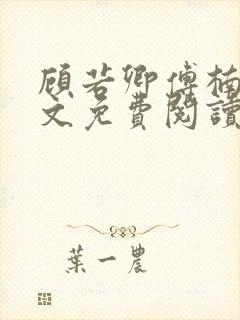 顧若卿傅楠
文免費閱讀
葉一農